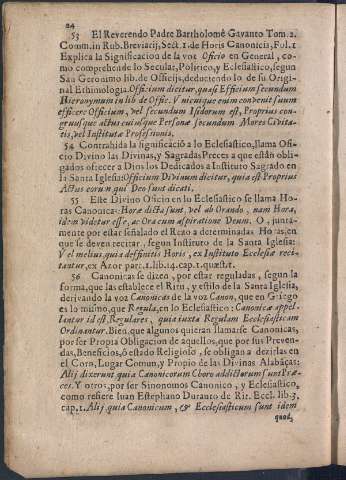 24
53 El Reverendo Padre Bartholomè Gavanto Tom. 2.
Comm. in Rub. Breviacij, Sect. 1. de Horis Canonicis, Fol. 1
Explica la Significacion de la voz Oficio en General, co-
mo comprehende lo Secular, Politico, y Eclesiastico, segun
San Geronimo lib. de Officijs, deduciendo lo de su Origi-
nal Ethimologia. Officium dicitur, quasi Efficium secundum
Hieronymum in lib de Offic. Vnicuique enim convenit suum
efficere Officium, vel secundum Isidorum est, Proprius con-
gruusque actus cuiusque Personæ secundum Mores Civita-
tis, vel Institutæ Professionis.
54 Contrahida la significació a lo Eclesiastico, llama Ofi-
cio Divino las Divinas, y Sagradas Preces a que están obli-
gados ofrecer a Dios los Dedicados a Instituto Sagrado en
la Santa Iglesia: Officium Divinum dicitur, quia est Proprius
Actus eorum qui Deo sunt dicati.
55 Este Divino Oficio en lo Eclesiastico se llama Ho-
ras Canonicas: Horæ dictæ sunt, vel ab Orando, nam Hora,
idem videtur esse, ac Ora cum aspiratione Deum. O, junta-
mente por estar señalado el Rezo a determinadas Horas, en
que se deven recitar, segun Instituto de la Santa Iglesia:
Vel melius, quia deffinitis Horis, ex Instituto Ecclesiæ reci-
tantur, ex Azor part. 1. lib. 14. cap. 1. quæst. 1.
56 Canonicas se dizen, por estar reguladas, segun la
forma, que las establece el Ritu, y estilo de la Santa Iglesia,
derivando la voz Canonicas de la voz Canon, que en Griego
es lo mismo, que Regula, en lo Eclesiastico: Canonicæ appel-
lantur id est Regulares, quia iuxta Regulam Ecclesiasticam
Ordinantur. Bien, que algunos quieran llamarse Canonicas,
por ser Propia Obligacion de aquellos, que por sus Preven-
das, Beneficios, ò estado Religioso, se obligan a dezirlas en
el Coro, Lugar Comun, y Propio de las Divinas Alabáças:
Alij dixerunt quia Canonicorum Choro addictorum sunt Præ-
ces. Y otros, por ser Sinonomos Canonico, y Eclesiastico,
como refiere Iuan Estephano Duranto de Rit. Eccl. lib. 3.
cap. 1. Alij quia Canonicum, & Ecclesiasticum sunt idem
quod,